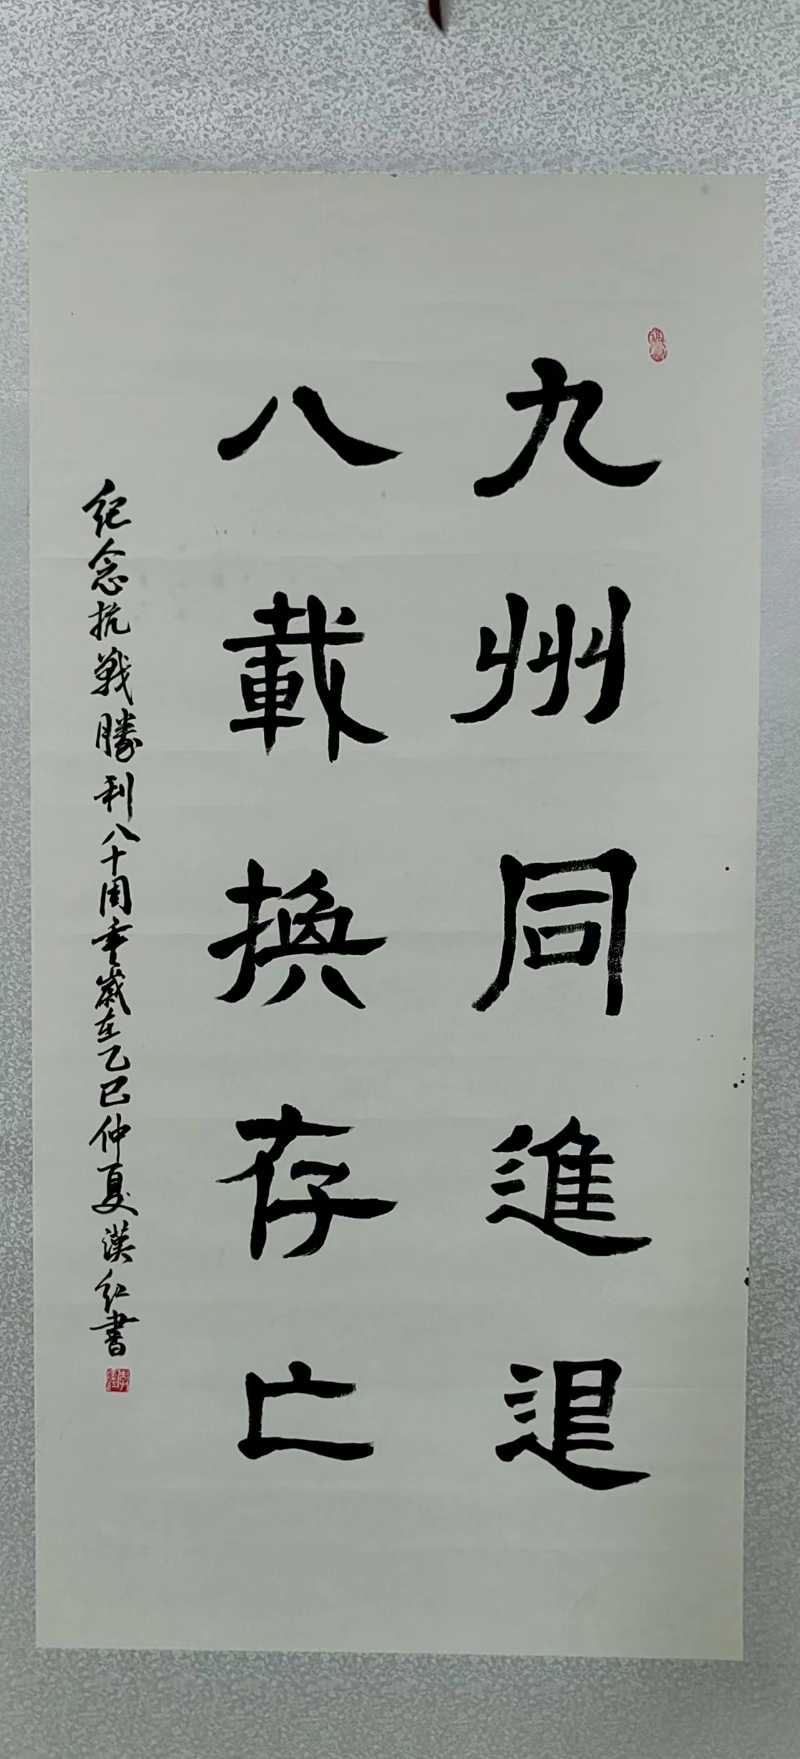 九州同進退
八載換存亡
紀念抗戰勝利八十周年歲在乙巳仲夏漢紅書